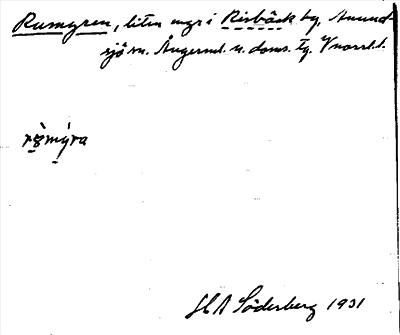 Rumyren, liten myr i Risbäck by, Anund-
sjö sn. Ångerml. n. doms. tg. Vnorrl. l.
HA Söderberg 1931